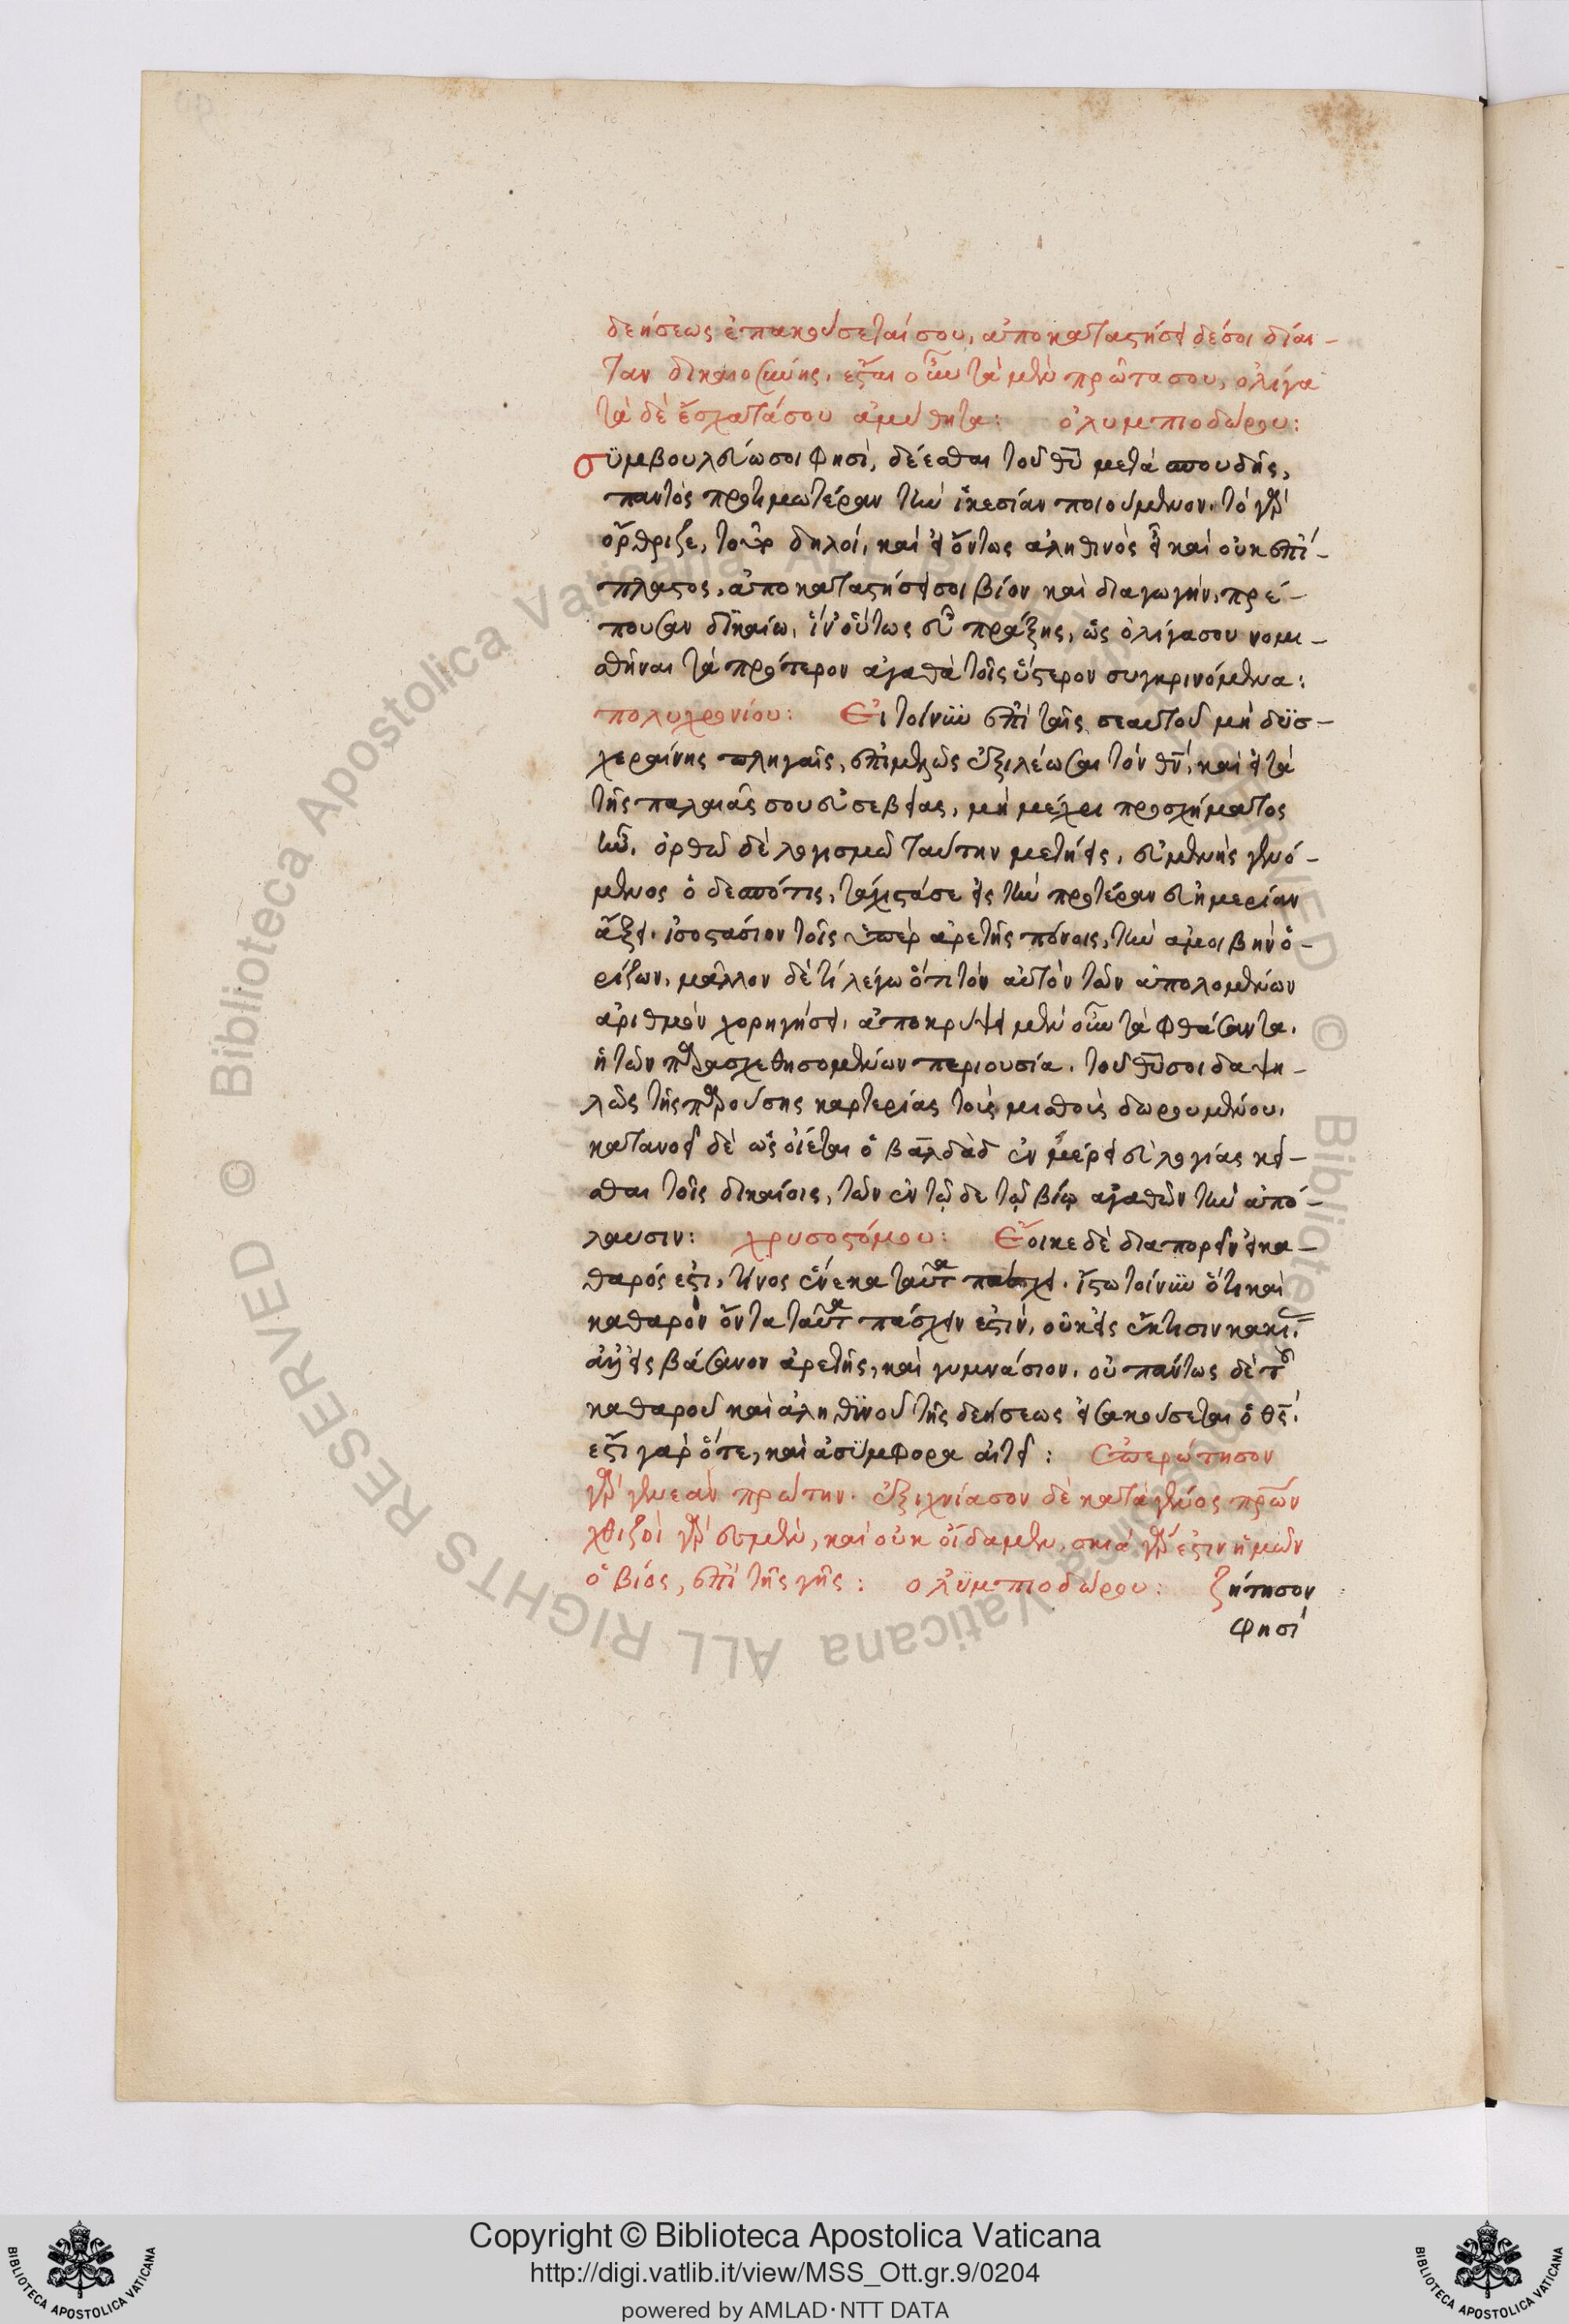 δεήσεως ἐπακούσεταί σου, ἀποκαταστήσει δέ σοι δίαι-
ταν δικαιοσύνης. ἔσται οὖν τὰ μὲν πρῶτα σου, ὀλίγα
τὰ δὲ ἔσχατά σου ἀμύθητα: ὀλυμπιοδώρου:
σϋμβουλεύω σοι φησὶ, δέεσθαι τοῦ θῦ μετὰ σπουδῆς,
παντὸς προτιμωτέραν τὴν ἱκεσίαν ποιούμενον. τὸ γὰρ
ὄρθριζε, τοῦτο δηλοῖ, καὶ εἰ ὄντως ἀληθινὸς εἶ καὶ οὐκ ἐπί-
πλαστος, ἀποκαταστήσει σοι βίον καὶ διαγωγὴν, πρέ-
πουσαν δικαίω, ἵν' οὕτως εὖ πράξης, ὡς ὀλίγα σου νομι-
σθῆναι τὰ πρότερον ἀγαθὰ τοῖς ὕστερον συγκρινόμενα:
πολυχρονίου: Εἰ τοίνϋν ἐπὶ ταῖς σεαυτοῦ μὴ δϋσ-
χεραίνης πληγαῖς, ἐπιμελῶς ἐξιλέωσαι τὸν θν̄, καὶ εἰ τὰ
τῆς παλαιᾶς σου εὐσεβείας, μὴ μέχρι προσχήματος
ἦν. ὀρθῶ δὲ λογισμῶ ταύτην μετήεις, εὐμενὴς γενό-
μενος ὁ δεσπότις, τάχιστά σε εἰς τὴν προτέραν εὐημερίαν
ἄξει. ἰσοστάσιον τοῖς ὑπὲρ ἀρετῆς πόνοις, τὴν ἀμοιβὴν ὁ-
ρίζων. μᾶλλον δὲ τί λέγω ὅτι τὸν αὐτὸν τῶν ἀπολομένων
ἀριθμὸν χορηγήσει. ἀποκρύψει μὲν οὖν τὰ φθάσαντα.
ἡ τῶν παρασχεθησομένων περιουσία. τοῦ θῦ σοι δαψι-
λῶς τῆς παρούσης καρτερίας τοὺς μισθοὺς δωρουμένου.
κατανοεῖ δὲ ὡς οἴεται ὁ βαλδὰδ ἐν μέρει εὐλογίας κεῖ-
σθαι τοῖς δικαίοις, τῶν ἐν τῷ δε τῷ βίῳ ἀγαθῶν τὴν ἀπό-
λαυσιν: χρυσοστόμου: Ἔοικε δὲ διαπορεῖν εἰ κα-
θαρός ἐστι, τίνος ἕνεκα ταῦτα πάσχει. ἴστω τοίνϋν ὅτι καὶ
καθαρὸν ὄντα ταῦτα πάσχειν ἐστὶν, οὐκ εἰς ἔκτισιν κακι.
ἀλλ' εἰς βάσανον ἀρετῆς, καὶ γυμνάσιον. οὐ πάντως δὲ τοῦ
καθαροῦ καὶ ἀληθϊνοῦ τῆς δεήσεως εἰσακούσεται ὁ θς̄.
ἔστι γὰρ ὅτε, καὶ ἀσϋμφορα αἰτεῖ: Ἐπερώτησον
γὰρ γενεὰν πρώτην. ἐξιχνίασον δὲ κατὰ γένος πρ̄ων
χθιζοὶ γὰρ ἐσμὲν, καὶ οὐκ οἴδαμεν. σκιὰ γάρ ἐστιν ἡμῶν
ὁ βίος, ἐπὶ τῆς γῆς: ολϋμπιοδώρου: ζήτησον
φησί
Copyright © Biblioteca Apostolica Vaticana
http://digi.vatlib.it/view/MSS_Ott.gr.9/0204
powered by AMLAD·NTT DATA